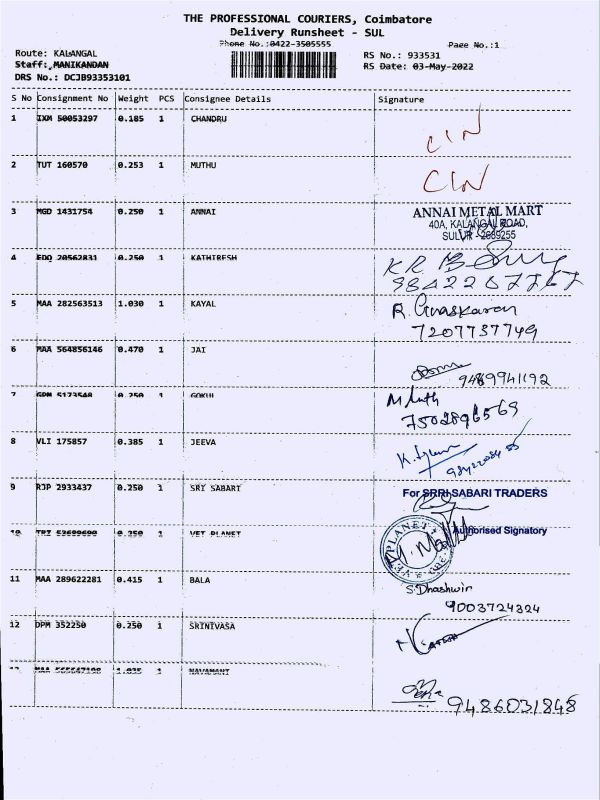 THE PROFESSIONAL COURIERS, Coimbatore
Delivery Runsheet - SUL
Phone No.:0422-3505555
Page No.:1
Route: KALANGAL
RS No.: 933531
Staff: MANIKANDAN
RS Date: 03-May-2022
DRS No.: DCJB93353101
S No Consignment No Weight PCS Consignee Details Signature
1 IXM 50053297 0.185 1 CHANDRU
CIN
2 TUT 160570 0.253 1 MUTHU
CIN
3 MGD 1431754 0.250 1 ANNAI
ANNAI METAL MART
40A, KALANGAL ROAD,
SULUR
4 EDQ 20562831 0.250 1 KATHIRESH
K.R.
5 MAA 282563513 1.030 1 KAYAL
R.
7207737749
6 MAA 564856146 0.470 1 JAI
9489941192
7 GPM 5173548 0.250 1 GOKUL
7502896569
8 VLI 175857 0.385 1 JEEVA
9 RJP 2933437 0.250 1 SRI SABARI
For SRRI SABARI TRADERS
Authorised Signatory
10 0.250 1 VET PLANET
VET PLANET
11 MAA 289622281 0.415 1 BALA
S. Dhashwin
9003724324
12 DPM 352250 0.250 1 SRINIVASA
13 MAA 1.035 1
9486031848